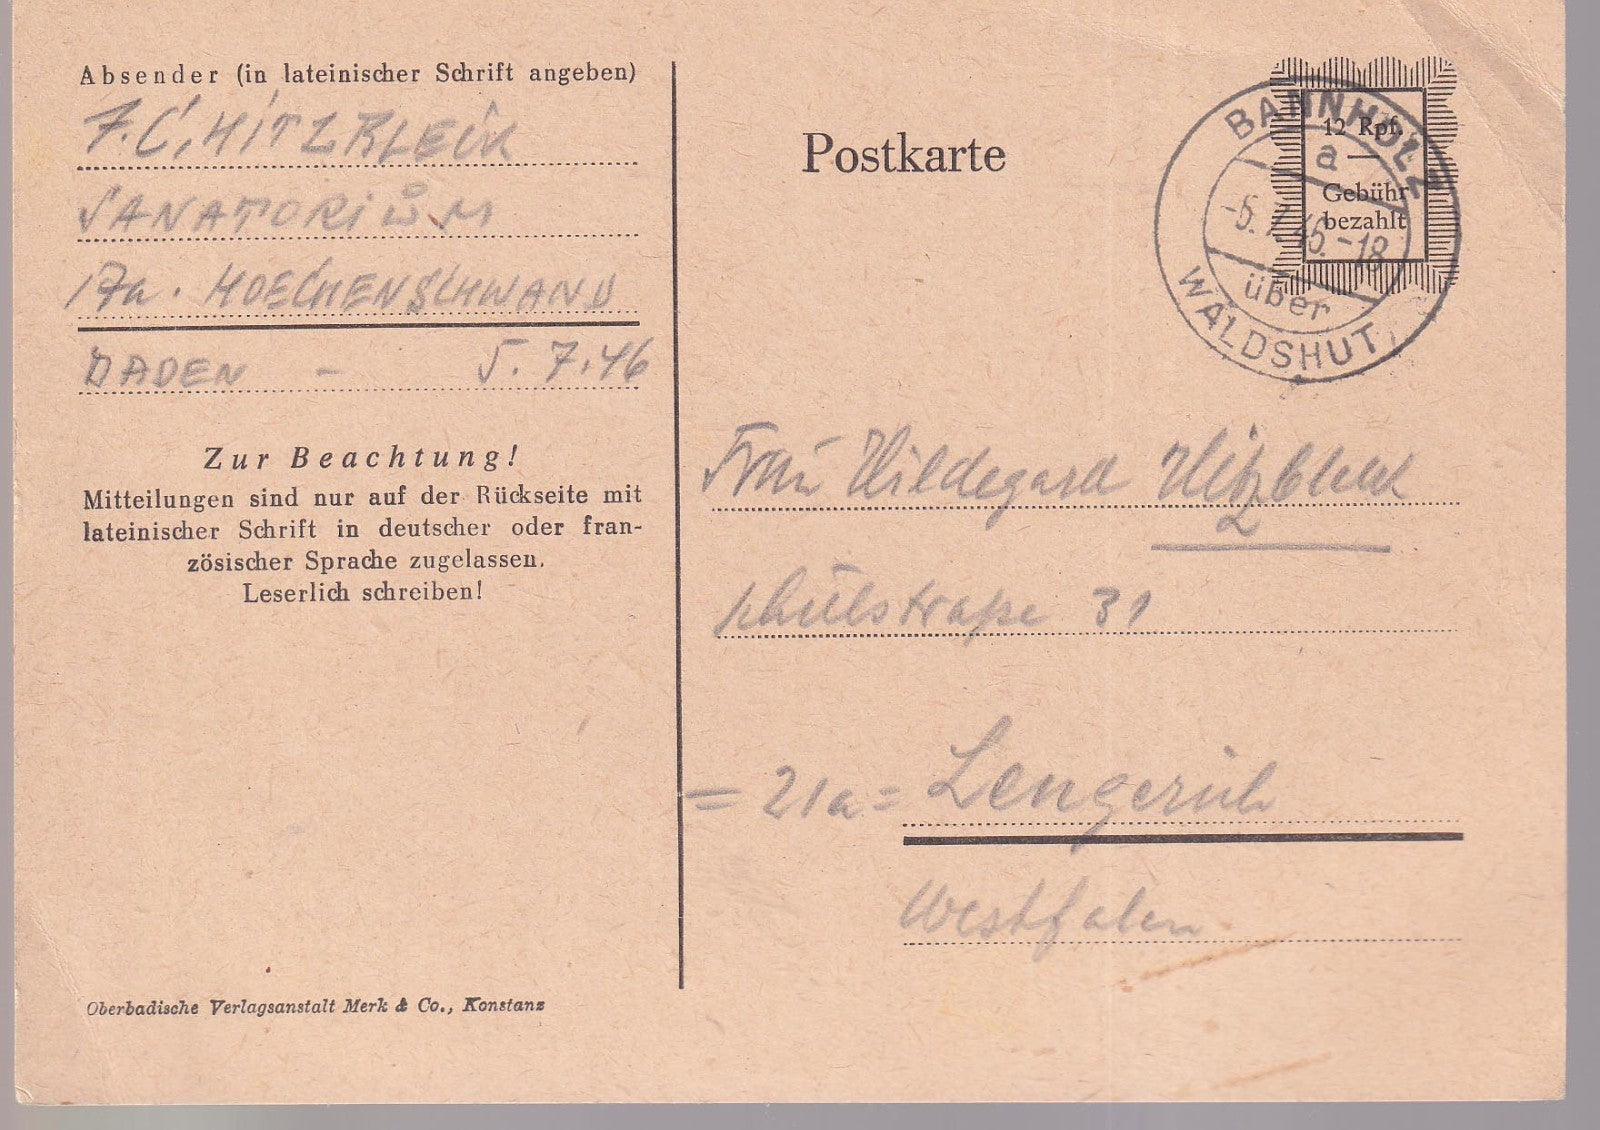 Absender (in lateinischer Schrift angeben)
F. C. HITZBLECK
SANATORIUM
17a. HOECHENSCHWAND
BADEN – 5.7.46
Zur Beachtung!
Mitteilungen sind nur auf der Rückseite mit
lateinischer Schrift in deutscher oder fran-
zösischer Sprache zugelassen.
Leserlich schreiben!
Oberbadische Verlagsanstalt Merk & Co., Konstanz
Postkarte
12 Rpf.
Gebühr
bezahlt
BANNHOLZ
a
-5.7.46.-18
über
WALDSHUT
Frau Hildegard Hitzbleck
Schulstraße 31
= 21a = Lengerich
Westfalen